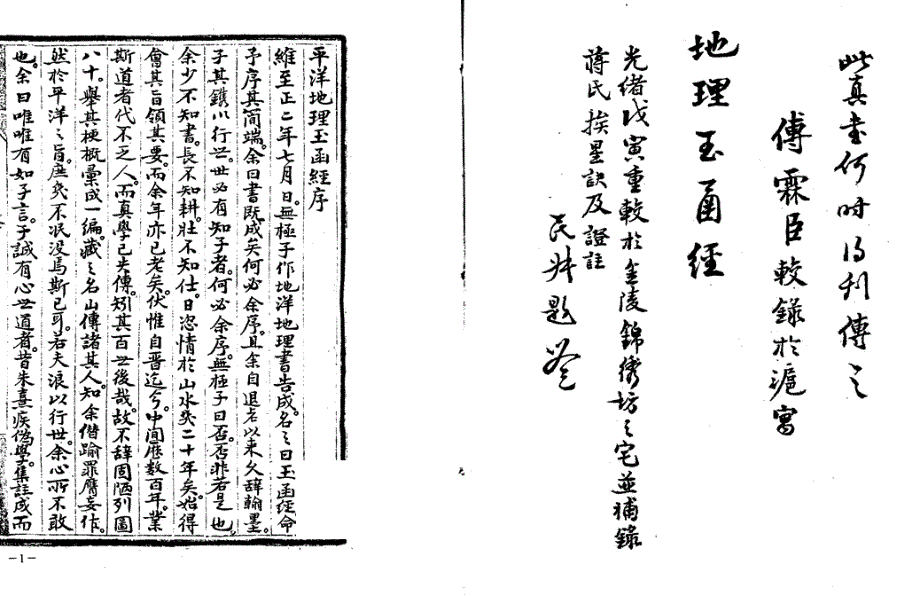 此真書何時得刊傳之
傅霖臣較錄於滬寓
地理玉函經
光緒戊寅重較於金陵錦衛坊之宅並補錄
蔣氏挨星訣及證註
平洋地理玉函經序
維至正二年七月日。無極子作地洋地理書告成。名之曰玉函經命
予序其簡端。余曰書既成矣何必余序。且余自退老以來久辭翰墨。
子其鐫以行世。世必有知子者。何必余序。無極子曰否否。非若是也。
余少不知書。長不知耕。壯不知仕。日恣情於山水矣二十年矣。始得
會其旨領其要。而余年亦已老矣。伏惟自晉迄今。中間歷數百年。業
斯道者代不乏人。而真學已失傳。矧其百世後哉。故不辭固陋列圖
八十。舉其梗概彙成一編。藏之名山傳諸其人。知余僭踰罪膺妄作。
然於平洋之旨。庶矣不泯没焉斯已耳。若夫浪以行世。余心所不敢
也。余曰唯唯有如子言。予誠有心世道者。昔朱熹疾偽學。集註成而
-1-